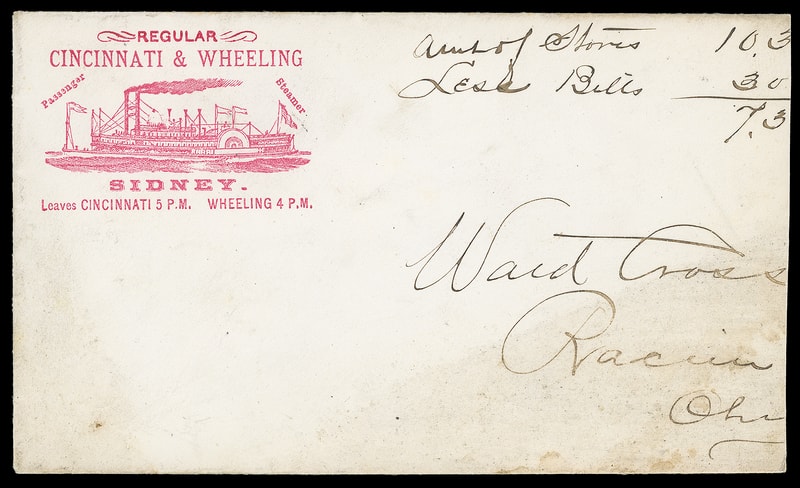 REGULAR
CINCINNATI & WHEELING
Passenger Steamer
SIDNEY.
Leaves CINCINNATI 5 P.M. WHEELING 4 P.M.
Amt of Stores 10.3
Less Bills 30
7.3
Ward Cross
Racine
Ohi